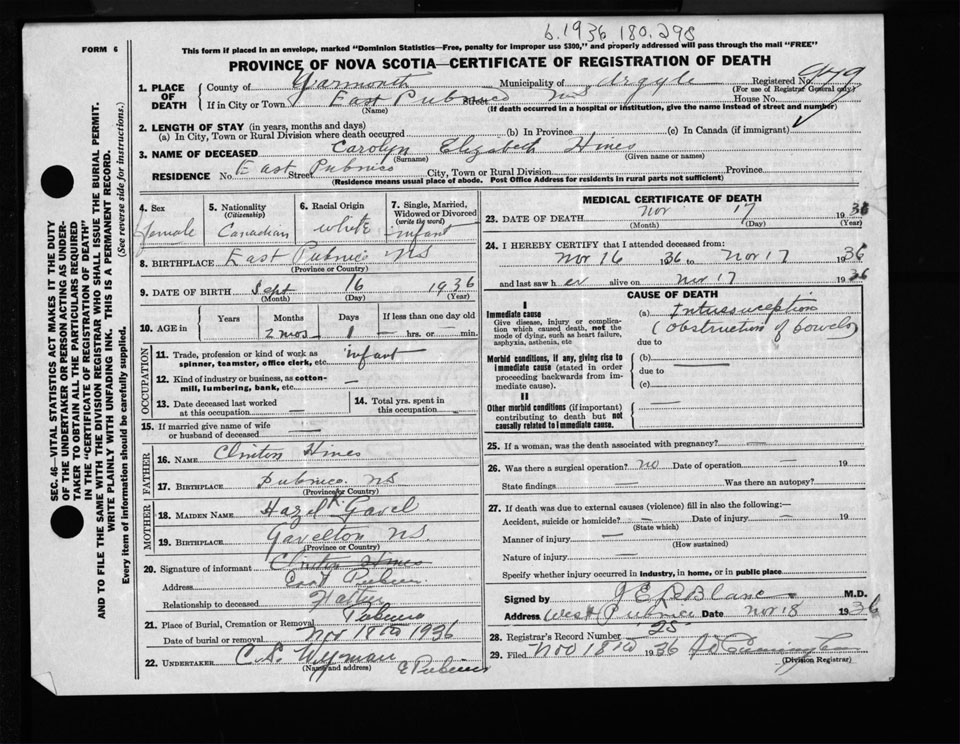 b.1936 180.298
FORM 6
This form if placed in an envelope, marked "Dominion Statistics—Free, penalty for improper use $300," and properly addressed will pass through the mail "FREE"
PROVINCE OF NOVA SCOTIA—CERTIFICATE OF REGISTRATION OF DEATH
SEC. 46—VITAL STATISTICS ACT MAKES IT THE DUTY
OF THE UNDERTAKER OR PERSON ACTING AS UNDER-
TAKER TO OBTAIN ALL THE PARTICULARS REQUIRED
IN THE "CERTIFICATE OF REGISTRATION OF DEATH"
AND TO FILE THE SAME WITH THE DIVISION REGISTRAR WHO SHALL ISSUE THE BURIAL PERMIT.
WRITE PLAINLY WITH UNFADING INK. THIS IS A PERMANENT RECORD.
Every item of information should be carefully supplied. (See reverse side for instructions.)
1. PLACE OF DEATH
County of Yarmouth Municipality of Argyle Registered No.
(For use of Registrar General only)
If in City or Town East Pubnico Street NS House No.
(Name) (If death occurred in a hospital or institution, give the name instead of street and number)
2. LENGTH OF STAY (in years, months and days)
(a) In City, Town or Rural Division where death occurred (b) In Province (c) In Canada (if immigrant)
3. NAME OF DECEASED Carolyn Elizabeth Hines
(Surname) (Given name or names)
RESIDENCE No. East Street Pubnico City, Town or Rural Division Province
(Residence means usual place of abode. Post Office Address for residents in rural parts not sufficient)
4. Sex female
5. Nationality (Citizenship) Canadian
6. Racial Origin white
7. Single, Married, Widowed or Divorced (write the word) infant
8. BIRTHPLACE East Pubnico NS
(Province or Country)
9. DATE OF BIRTH Sept 16 1936
(Month) (Day) (Year)
10. AGE in Years Months Days If less than one day old
2 mos 1 — hrs. or — min.
OCCUPATION
11. Trade, profession or kind of work as spinner, teamster, office clerk, etc. infant
12. Kind of industry or business, as cotton-mill, lumbering, bank, etc. —
13. Date deceased last worked at this occupation —
14. Total yrs. spent in this occupation —
15. If married give name of wife or husband of deceased —
FATHER
16. NAME Clinton Hines
17. BIRTHPLACE Pubnico NS
(Province or Country)
MOTHER
18. MAIDEN NAME Hazel Gavel
19. BIRTHPLACE Gavelton NS
(Province or Country)
20. Signature of informant Clinton Hines
Address East Pubnico
Relationship to deceased Father
21. Place of Burial, Cremation or Removal Pubnico
Date of burial or removal Nov 18th 1936
22. UNDERTAKER C.S. Wyman E Pubnico
(Name and address)
MEDICAL CERTIFICATE OF DEATH
23. DATE OF DEATH Nov 17 1936
(Month) (Day) (Year)
24. I HEREBY CERTIFY that I attended deceased from:
Nov 16 1936 to Nov 17 1936
and last saw her alive on Nov 17 1936
CAUSE OF DEATH
I
Immediate cause (a) Intussusception
Give disease, injury or complication which caused death, not the mode of dying, such as heart failure, asphyxia, asthenia, etc
(obstruction of bowels)
due to
Morbid conditions, if any, giving rise to immediate cause (stated in order proceeding backwards from immediate cause).
(b) —
due to
(c)
II
Other morbid conditions (if important) contributing to death but not causally related to immediate cause.
—
25. If a woman, was the death associated with pregnancy? —
26. Was there a surgical operation? no Date of operation — 19
State findings — Was there an autopsy?
27. If death was due to external causes (violence) fill in also the following:—
Accident, suicide or homicide? — Date of injury — 19
(State which)
Manner of injury —
(How sustained)
Nature of injury —
Specify whether injury occurred in industry, in home, or in public place
Signed by J E LeBlanc M.D.
Address West Pubnico Date Nov 18 1936
28. Registrar's Record Number 25
29. Filed Nov 18th 1936
(Division Registrar)